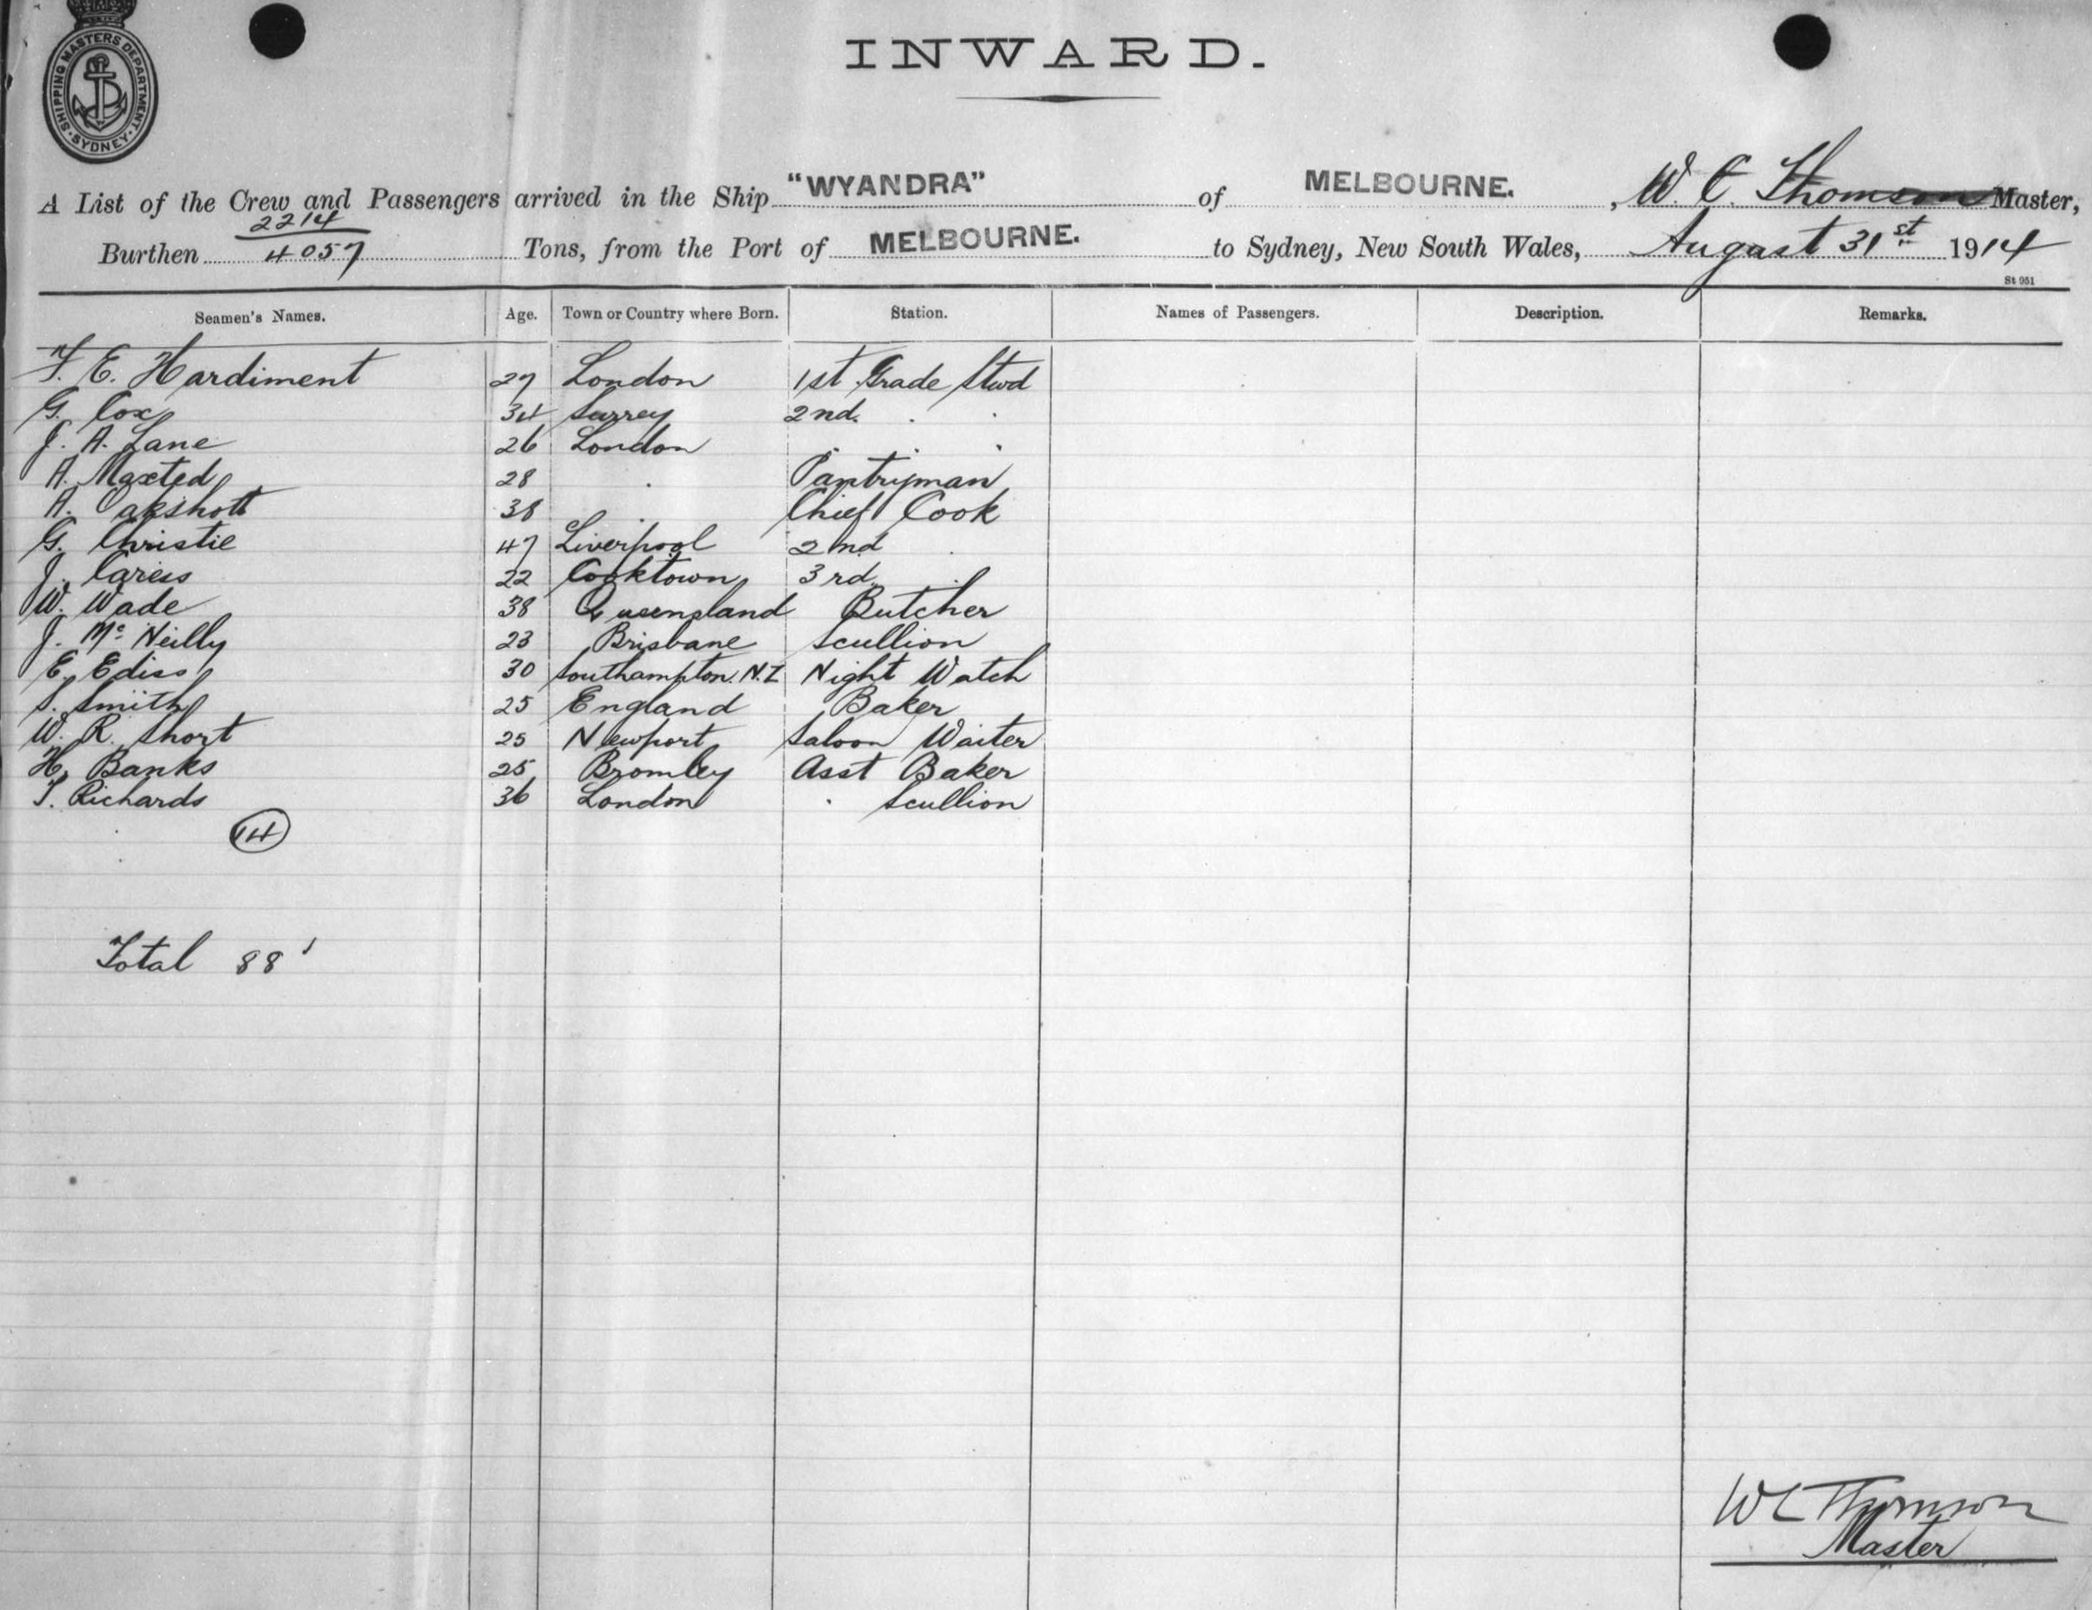 SHIPPING MASTERS DEPARTMENT
SYDNEY
INWARD.
A List of the Crew and Passengers arrived in the Ship "WYANDRA" of MELBOURNE. , W. C. Thomson Master,
2214
Burthen 4057 Tons, from the Port of MELBOURNE. to Sydney, New South Wales, August 31st 1914
St 951
Seamen's Names. Age. Town or Country where Born. Station. Names of Passengers. Description. Remarks.
F. E. Hardiment 27 London 1st Grade Stwd
G. Cox 34 Surrey 2nd. . .
J. A. Lane 26 London . . .
A. Maxted 28 . Pantryman
A. Oakshott 38 . Chief Cook
G. Christie 47 Liverpool 2nd .
J. Caress 22 Cooktown 3rd. .
W. Wade 38 Queensland Butcher
J. Mc Neilly 23 Brisbane Scullion
E. Ediss 30 Southampton. N.Z Night Watch
S. Smith 25 England Baker
W. R. Short 25 Newport Saloon Waiter
H. Banks 25 Bromley Asst Baker
T. Richards 36 London . Scullion
14
Total 88
W C Thomson
Master